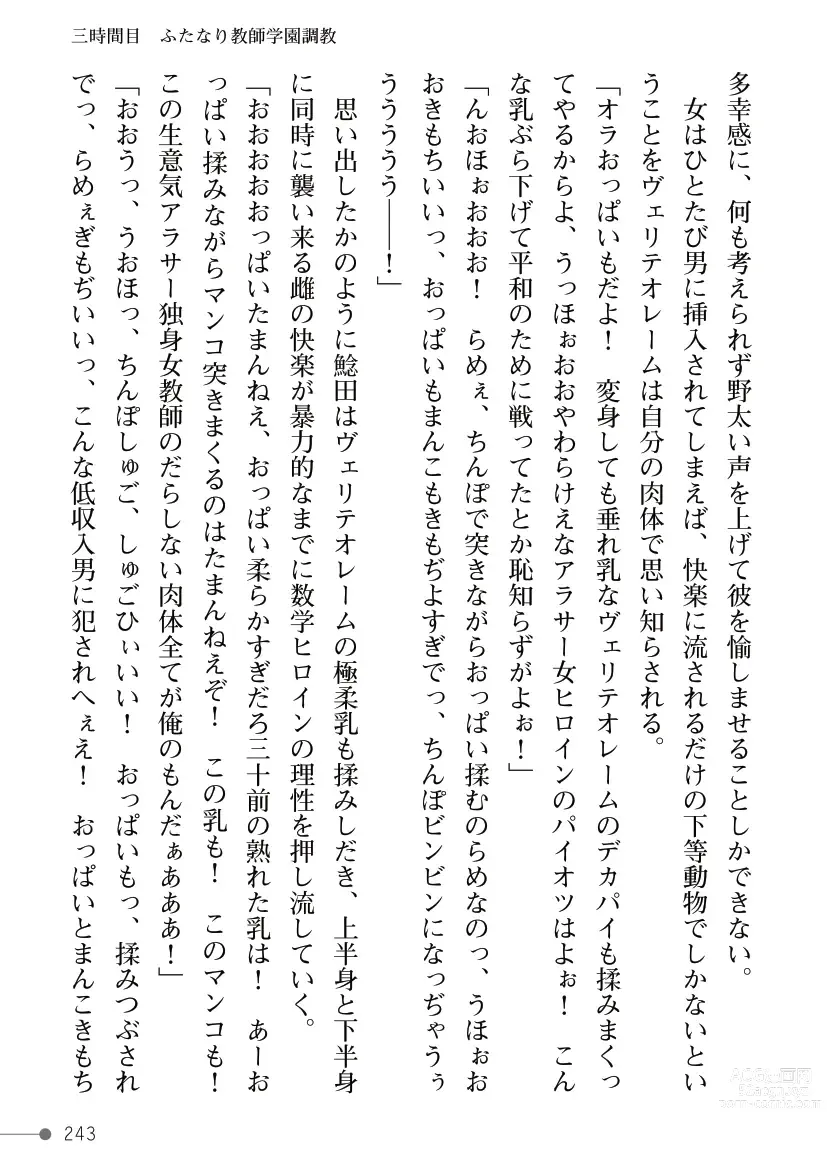 三時間目　ふたなり教師学園調教
多幸感に、何も考えられず野太い声を上げて彼を愉しませることしかできない。
　女はひとたび男に挿入されてしまえば、快楽に流されるだけの下等動物でしかないとい
うことをヴェリテオレームは自分の肉体で思い知らされる。
「オラおっぱいもだよ！　変身しても垂れ乳なヴェリテオレームのデカパイも揉みまくっ
てやるからよ、うっほぉおおやわらけえなアラサー女ヒロインのパイオツはよぉ！　こん
な乳ぶら下げて平和のために戦ってたとか恥知らずがよぉ！」
「んおほぉおおお！　らめぇ、ちんぽで突きながらおっぱい揉むのらめなのっ、うほぉお
おきもちいいっ、おっぱいもまんこもきもぢよすぎでっ、ちんぽビンビンになっぢゃうぅ
ううううう――！」
　思い出したかのように鯰田はヴェリテオレームの極柔乳も揉みしだき、上半身と下半身
に同時に襲い来る雌の快楽が暴力的なまでに数学ヒロインの理性を押し流していく。
「おおおおおっぱいたまんねえ、おっぱい柔らかすぎだろ三十前の熟れた乳は！　あーお
っぱい揉みながらマンコ突きまくるのはたまんねえぞ！　この乳も！　このマンコも！
この生意気アラサー独身女教師のだらしない肉体全てが俺のもんだぁあああ！」
「おおうっ、うおほっ、ちんぽしゅご、しゅごひぃいい！　おっぱいもっ、揉みつぶされ
でっ、らめぇぎもぢいいっ、こんな低収入男に犯されへぇえ！　おっぱいとまんこきもち
243